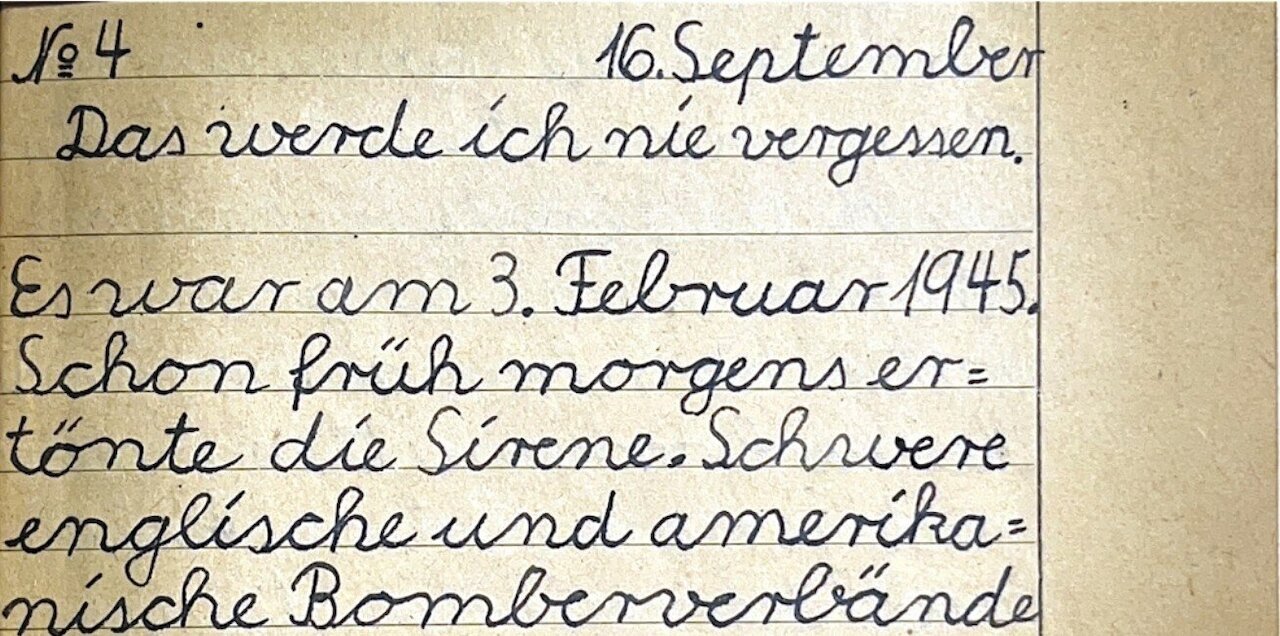 № 4 16. September
Das werde ich nie vergessen.
Es war am 3. Februar 1945.
Schon früh morgens er=
tönte die Sirene. Schwere
englische und amerika=
nische Bomberverbände